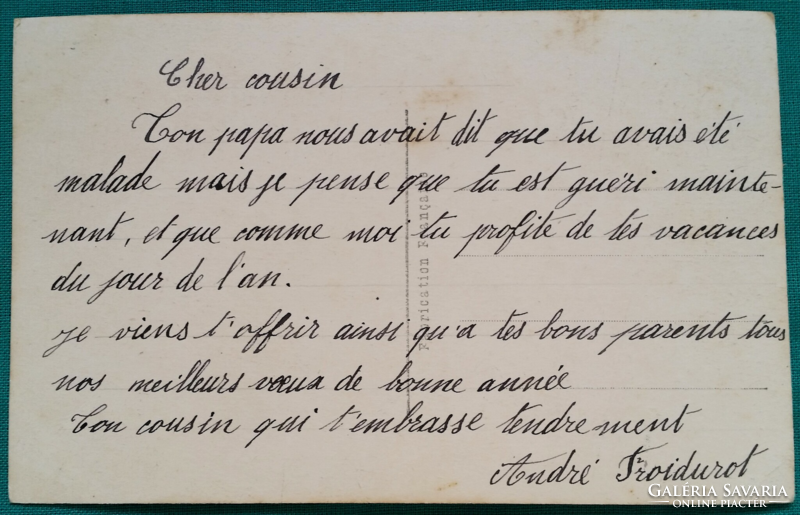 Cher cousin
Ton papa nous avait dit que tu avais été
malade mais je pense que tu est guéri mainte-
nant, et que comme moi tu profite de tes vacances
du jour de l'an.
je viens t'offrir ainsi qu'a tes bons parents tous
nos meilleurs vœux de bonne année
Ton cousin qui t'embrasse tendrement
André Froidurot
Fabrication Française
GALÉRIA SAVARIA
ONLINE PIACTÉR